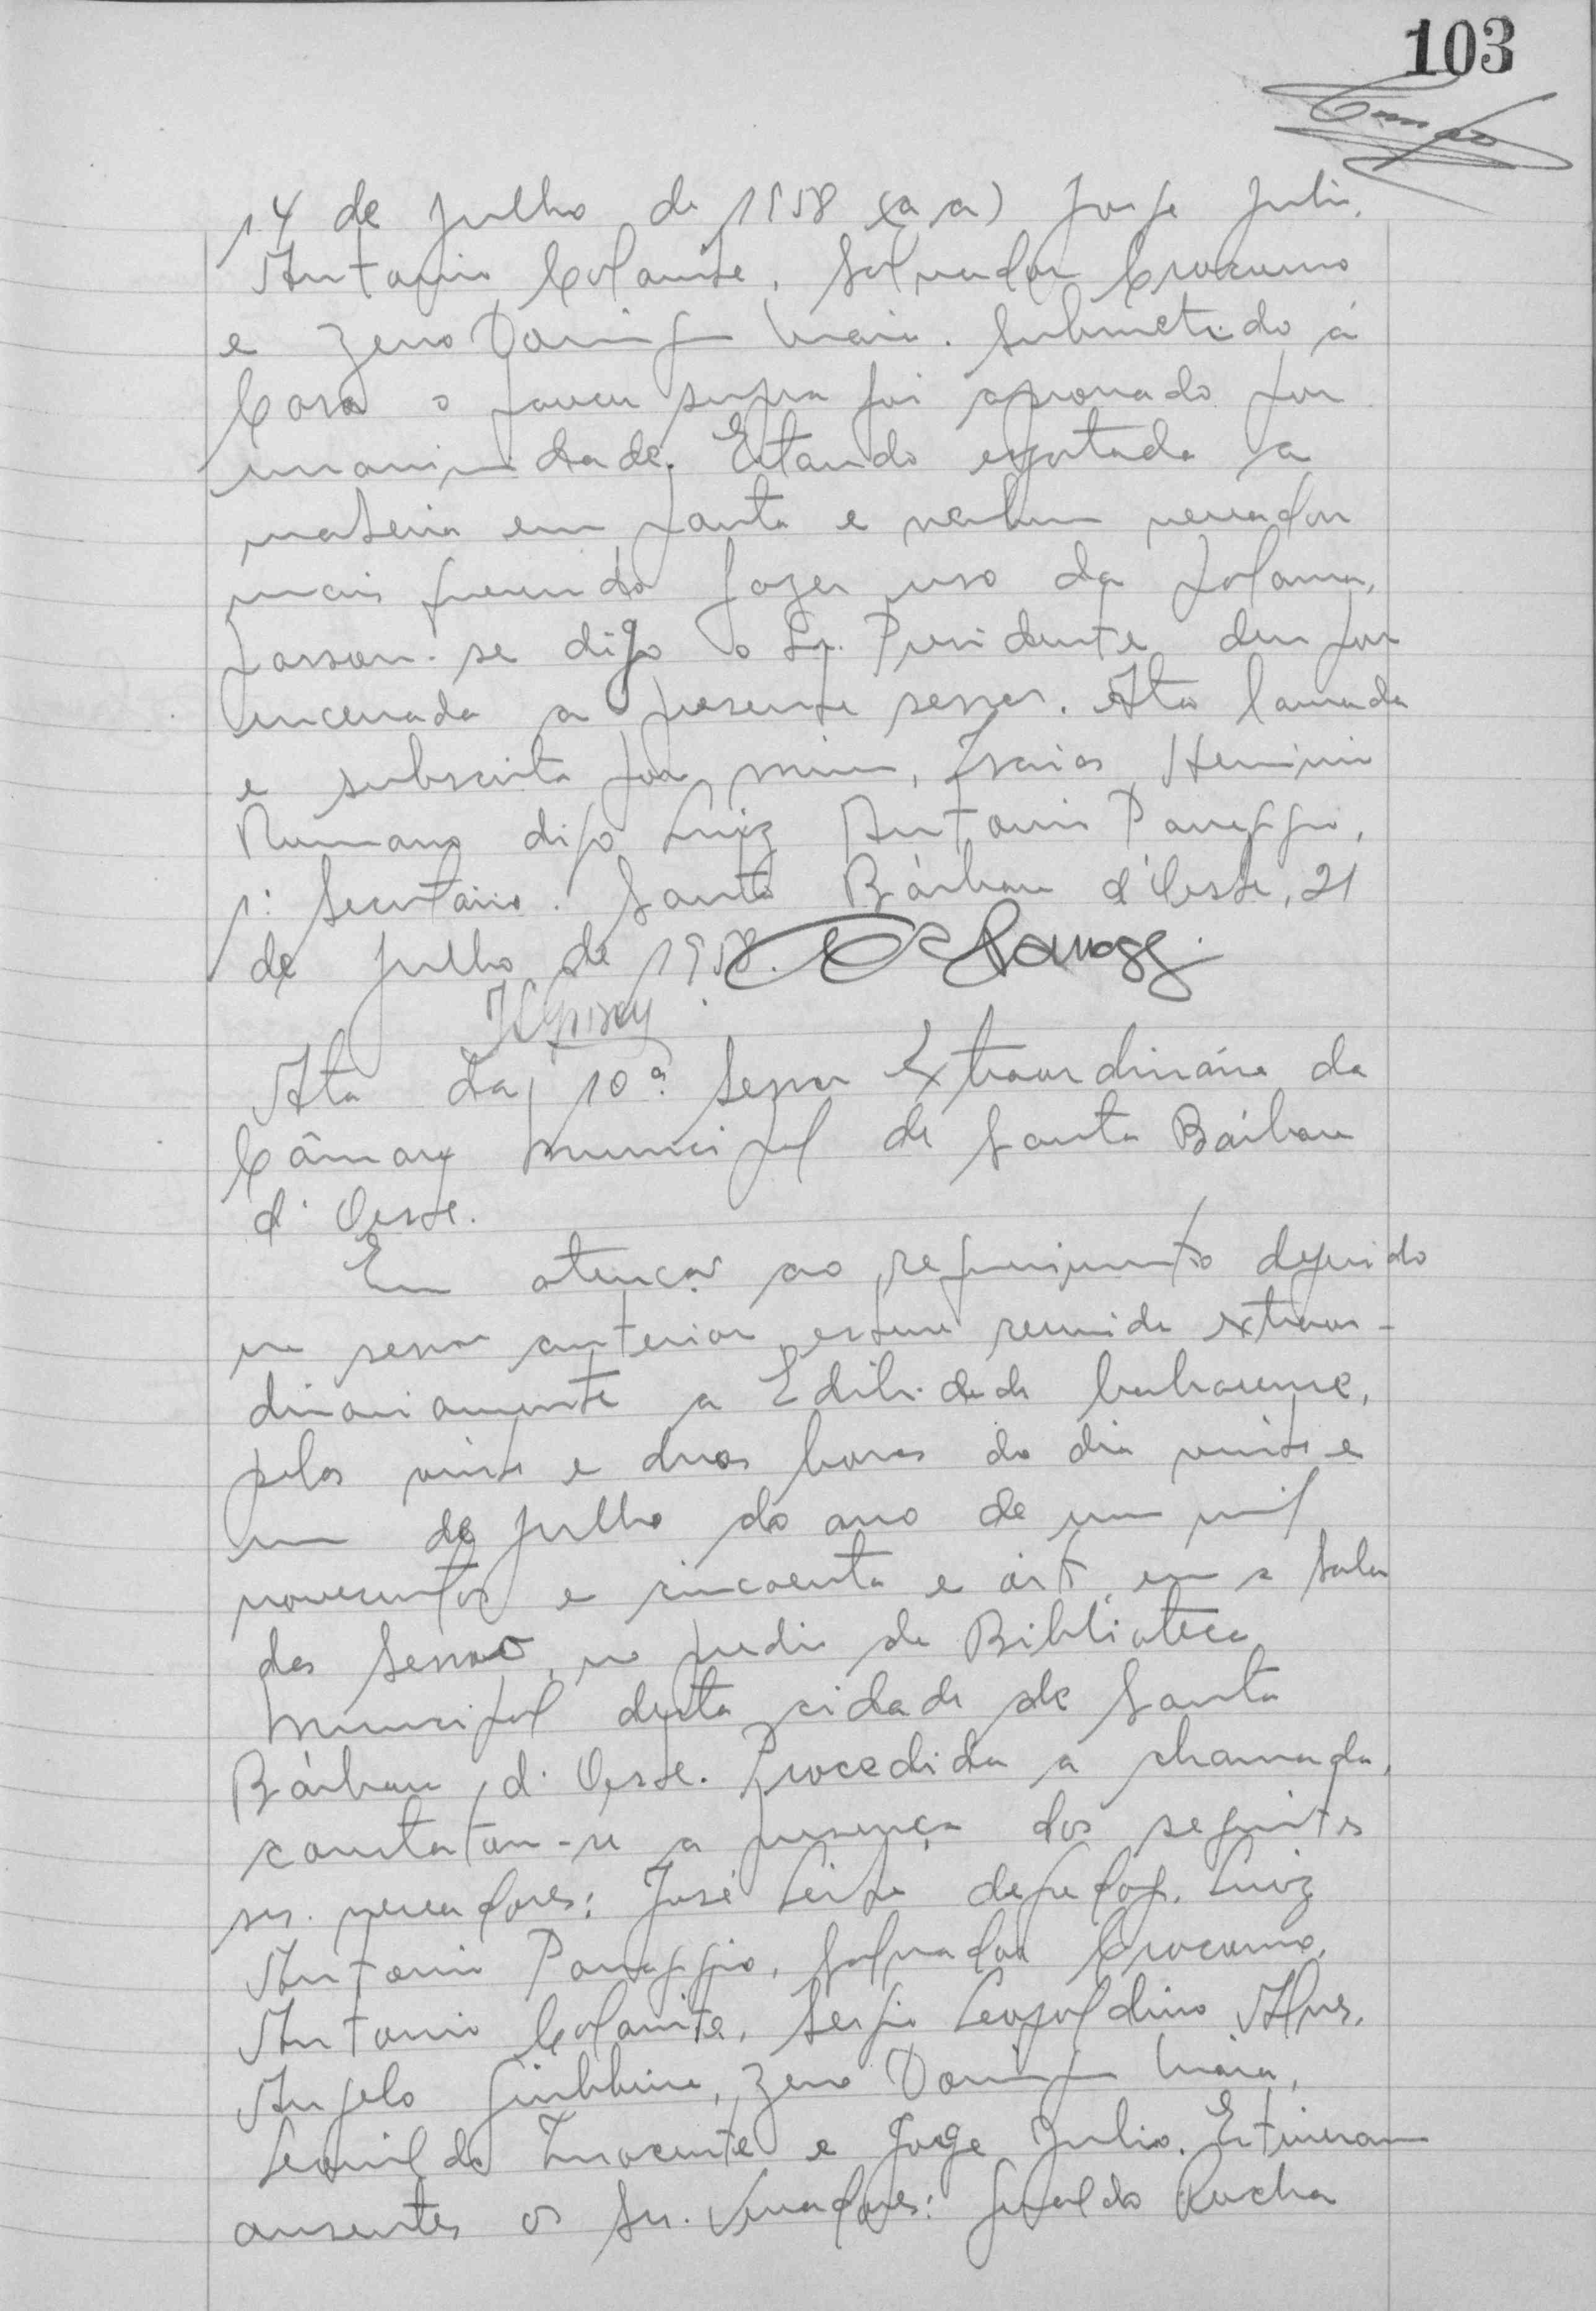 103
14 de Julho de 1958 (a a) Jorge Julio,
Antonio Colante, Salvador Crocomo
e Zeno Domingos Maia. Submetido á
Casa o parecer supra foi aprovado por
unanimidade. Estando esgotada a
materia em pauta e nenhum vereador
mais querendo fazer uso da palavra,
passou-se digo o Sr. Presidente deu por
encerrada a presente sessão. Ata lavrada
e subscrita por mim, Izaias Herminio
Romano digo Luiz Antonio Panaggio,
1º Secretário. Santa Bárbara d'Oeste, 21
de Julho de 1958.
Ata da 10ª Sessão Extraordinária da
Câmara Municipal de Santa Bárbara
d'Oeste.
Em atenção ao requerimento deferido
na sessão anterior, esteve reunida extraor-
dinariamente a Edilidade barbarense,
pelas vinte e duas horas do dia vinte e
um de Julho do ano de um mil
novecentos e cincoenta e oito, em a Sala
das Sessões, no predio da Biblioteca
Municipal desta cidade de Santa
Bárbara d'Oeste. Procedida a chamada,
constatou-se a presença dos seguintes
srs. vereadores: José Leite Luiz
Antonio Panaggio, Salvador Crocomo,
Antonio Colante, Sergio Leopoldino Alves,
Angelo Giubbina, Zeno Domingos Maia,
Leonildo Inocente e Jorge Julio. Estiveram
ausentes os Srs. Vereadores: Geraldo Rocha